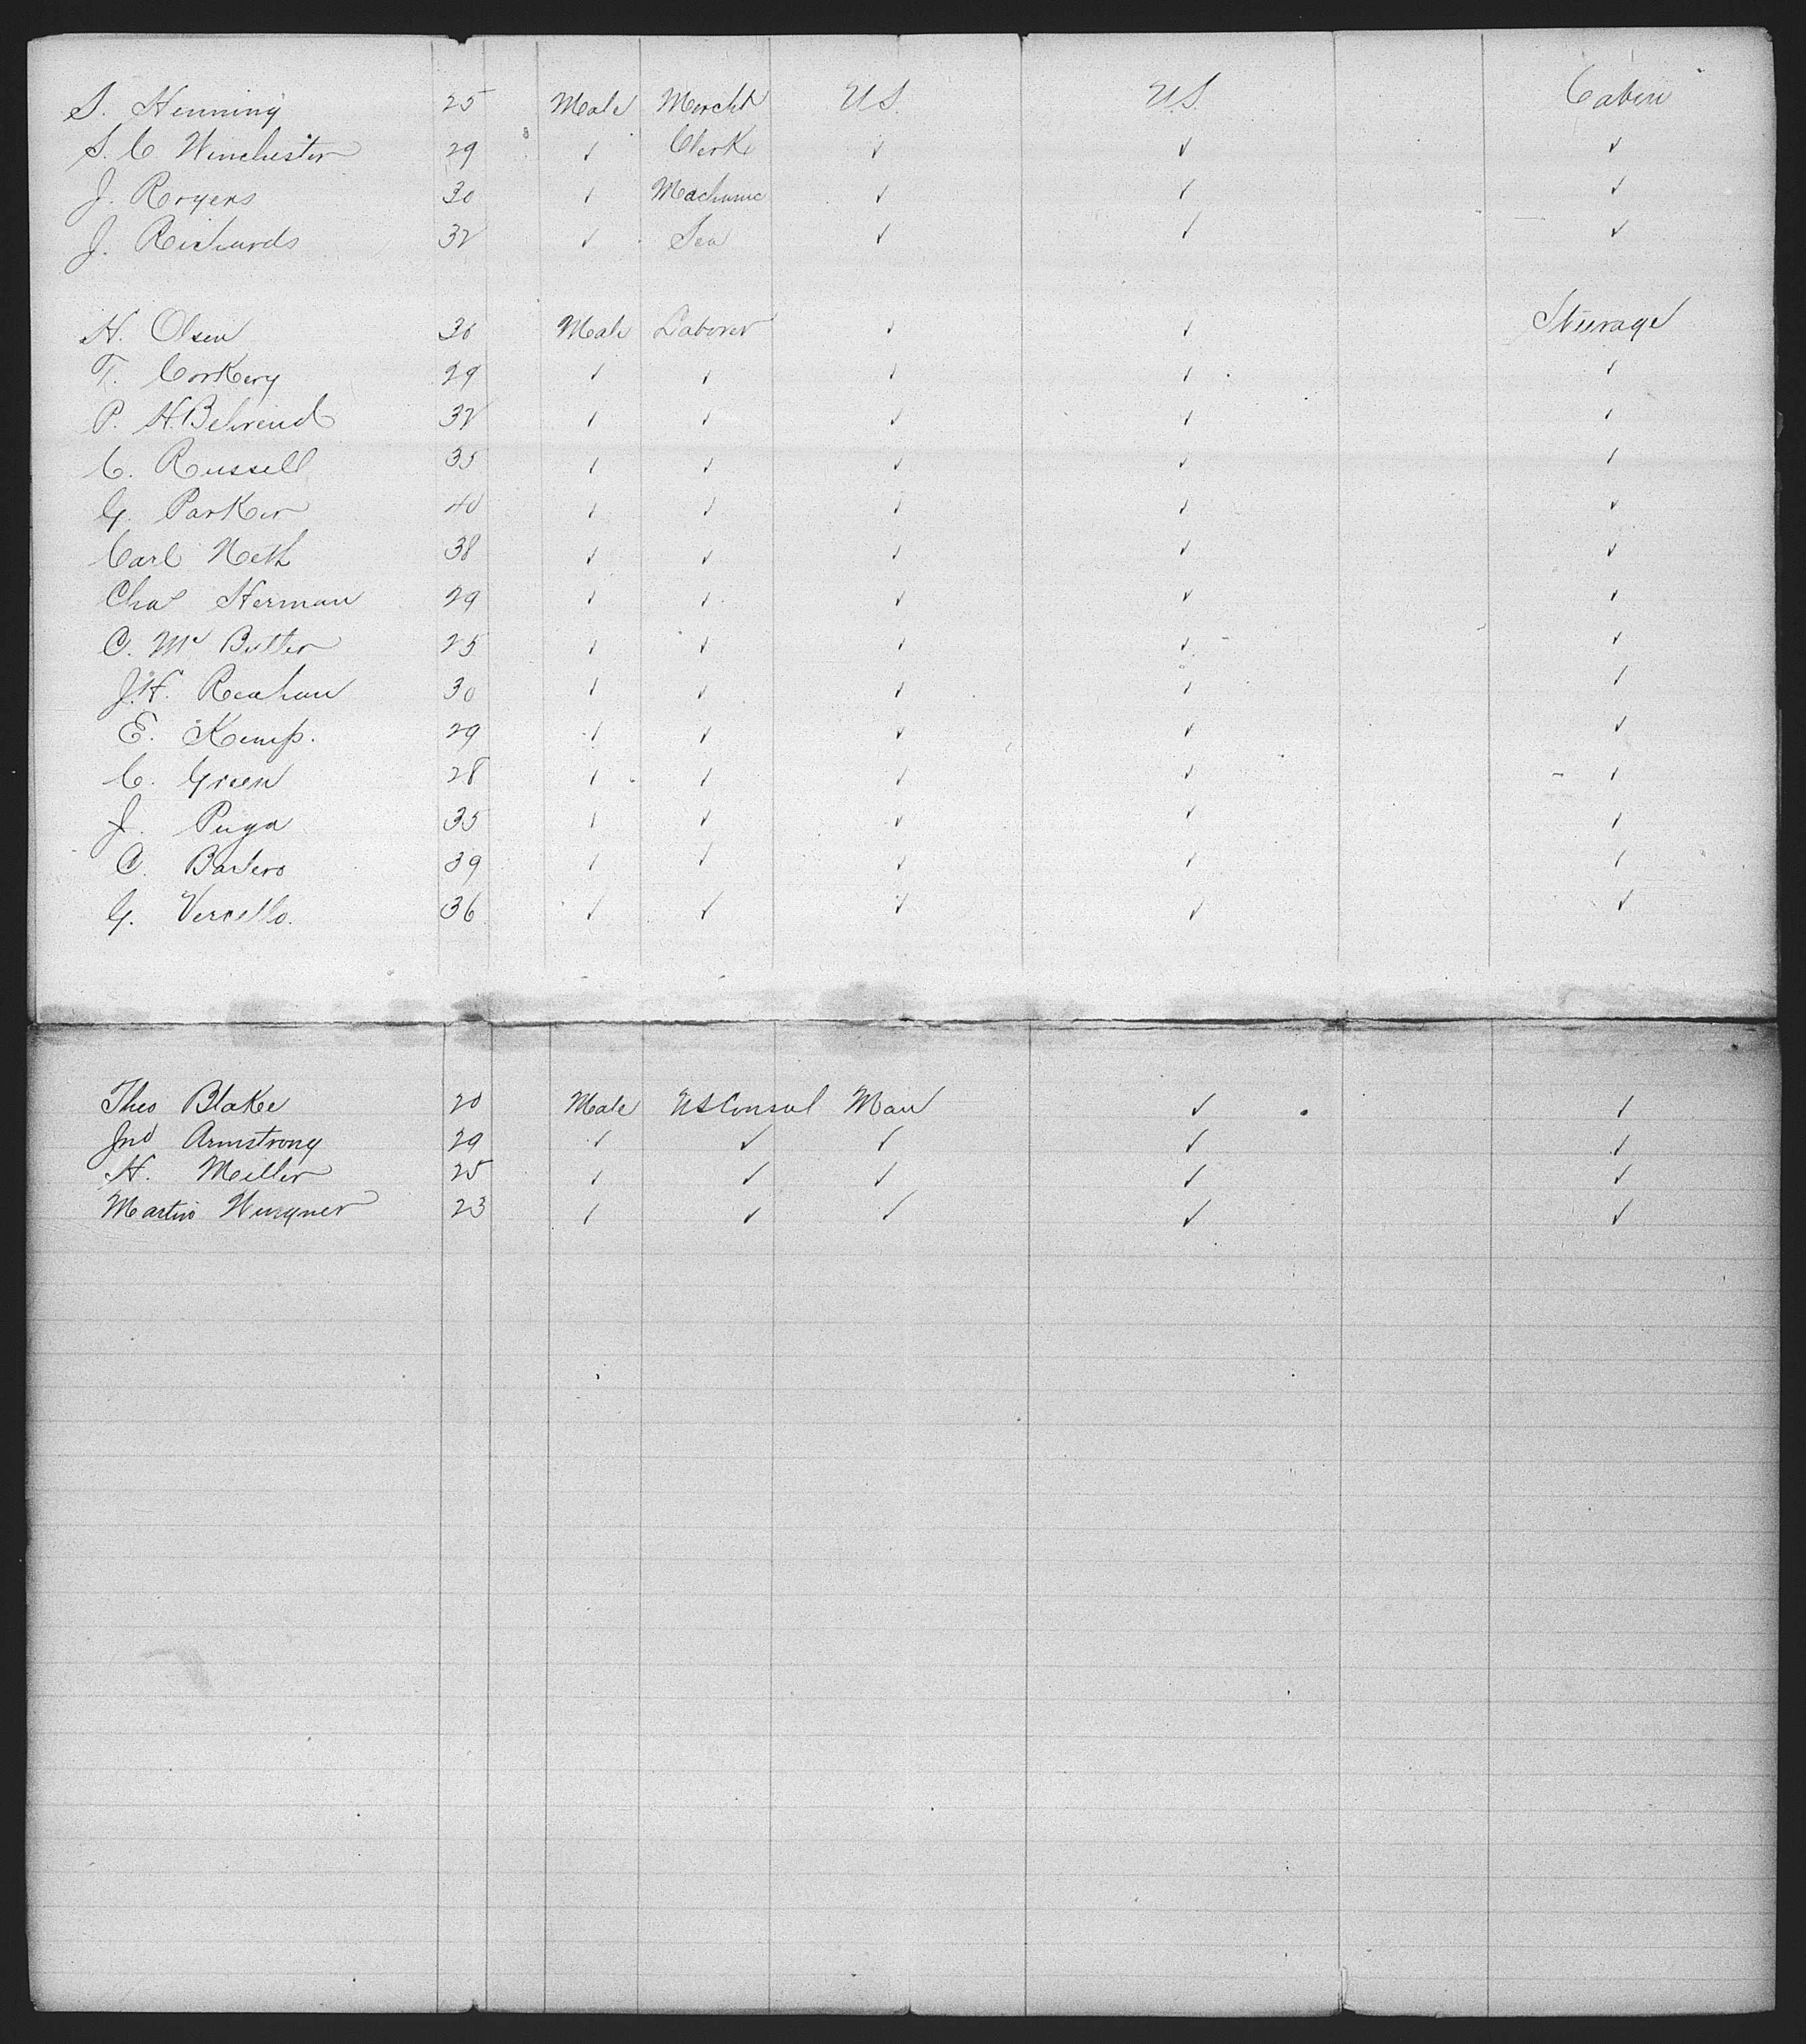 S. Henning 25 Male Mercht U.S. U.S. Cabin
S. C Winchester 29 ✓ Clerk ✓ ✓ ✓
J. Rogers 30 ✓ Mechanic ✓ ✓ ✓
J. Richards 32 ✓ Sea ✓ ✓ ✓
H. Olsen 30 Male Laborer ✓ ✓ Steerage
T. Corkery 29 ✓ ✓ ✓ ✓ ✓
P. H. Behrend 32 ✓ ✓ ✓ ✓ ✓
C. Russell 35 ✓ ✓ ✓ ✓ ✓
G. Parker 40 ✓ ✓ ✓ ✓ ✓
Carl Neth 38 ✓ ✓ ✓ ✓ ✓
Chas Herman 29 ✓ ✓ ✓ ✓ ✓
C. Mc Butter 25 ✓ ✓ ✓ ✓ ✓
J.H. 30 ✓ ✓ ✓ ✓ ✓
E. Kemp. 29 ✓ ✓ ✓ ✓ ✓
C. Green 28 ✓ ✓ ✓ ✓ ✓
J. Puga 35 ✓ ✓ ✓ ✓ ✓
C. 39 ✓ ✓ ✓ ✓ ✓
G. Vercello. 36 ✓ ✓ ✓ ✓ ✓
Theo Blake 20 Male US Consul Man ✓ ✓
Jno Armstrong 29 ✓ ✓ ✓ ✓ ✓
H. Miller 25 ✓ ✓ ✓ ✓ ✓
Martin 23 ✓ ✓ ✓ ✓ ✓